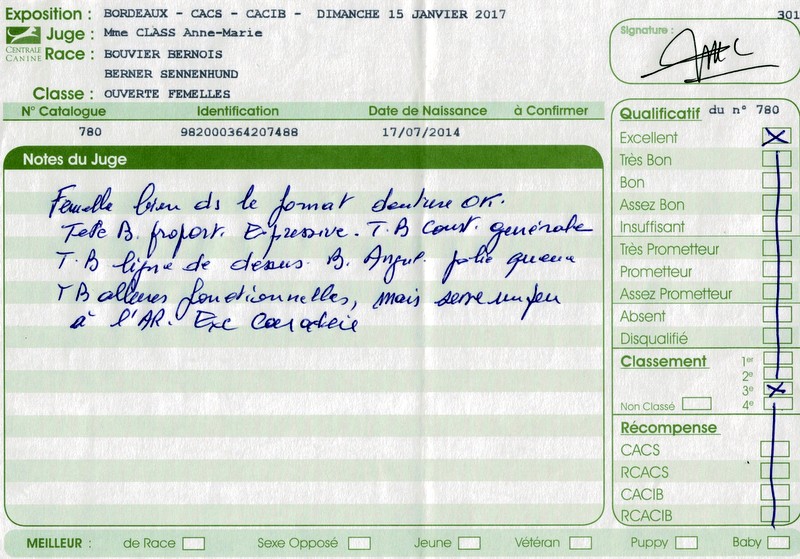 Exposition : BORDEAUX - CACS - CACIB - DIMANCHE 15 JANVIER 2017
301
Juge : Mme CLASS Anne-Marie
CENTRALE CANINE
Race : BOUVIER BERNOIS
BERNER SENNENHUND
Classe : OUVERTE FEMELLES
Signature :
N° Catalogue Identification Date de Naissance à Confirmer
780 982000364207488 17/07/2014
Notes du Juge
Femelle bien ds le format denture OK.
Tete B. proport. Expressive. T.B Const. generale
T.B ligne de dessus. B. Angul. jolie queue
TB allures fonctionnelles, mais serre un peu
à l'AR. Exc caractère
Qualificatif du n° 780
Excellent X
Très Bon
Bon
Assez Bon
Insuffisant
Très Prometteur
Prometteur
Assez Prometteur
Absent
Disqualifié
Classement 1er
2e
3e X
Non Classé 4e
Récompense
CACS
RCACS
CACIB
RCACIB
MEILLEUR : de Race Sexe Opposé Jeune Vétéran Puppy Baby